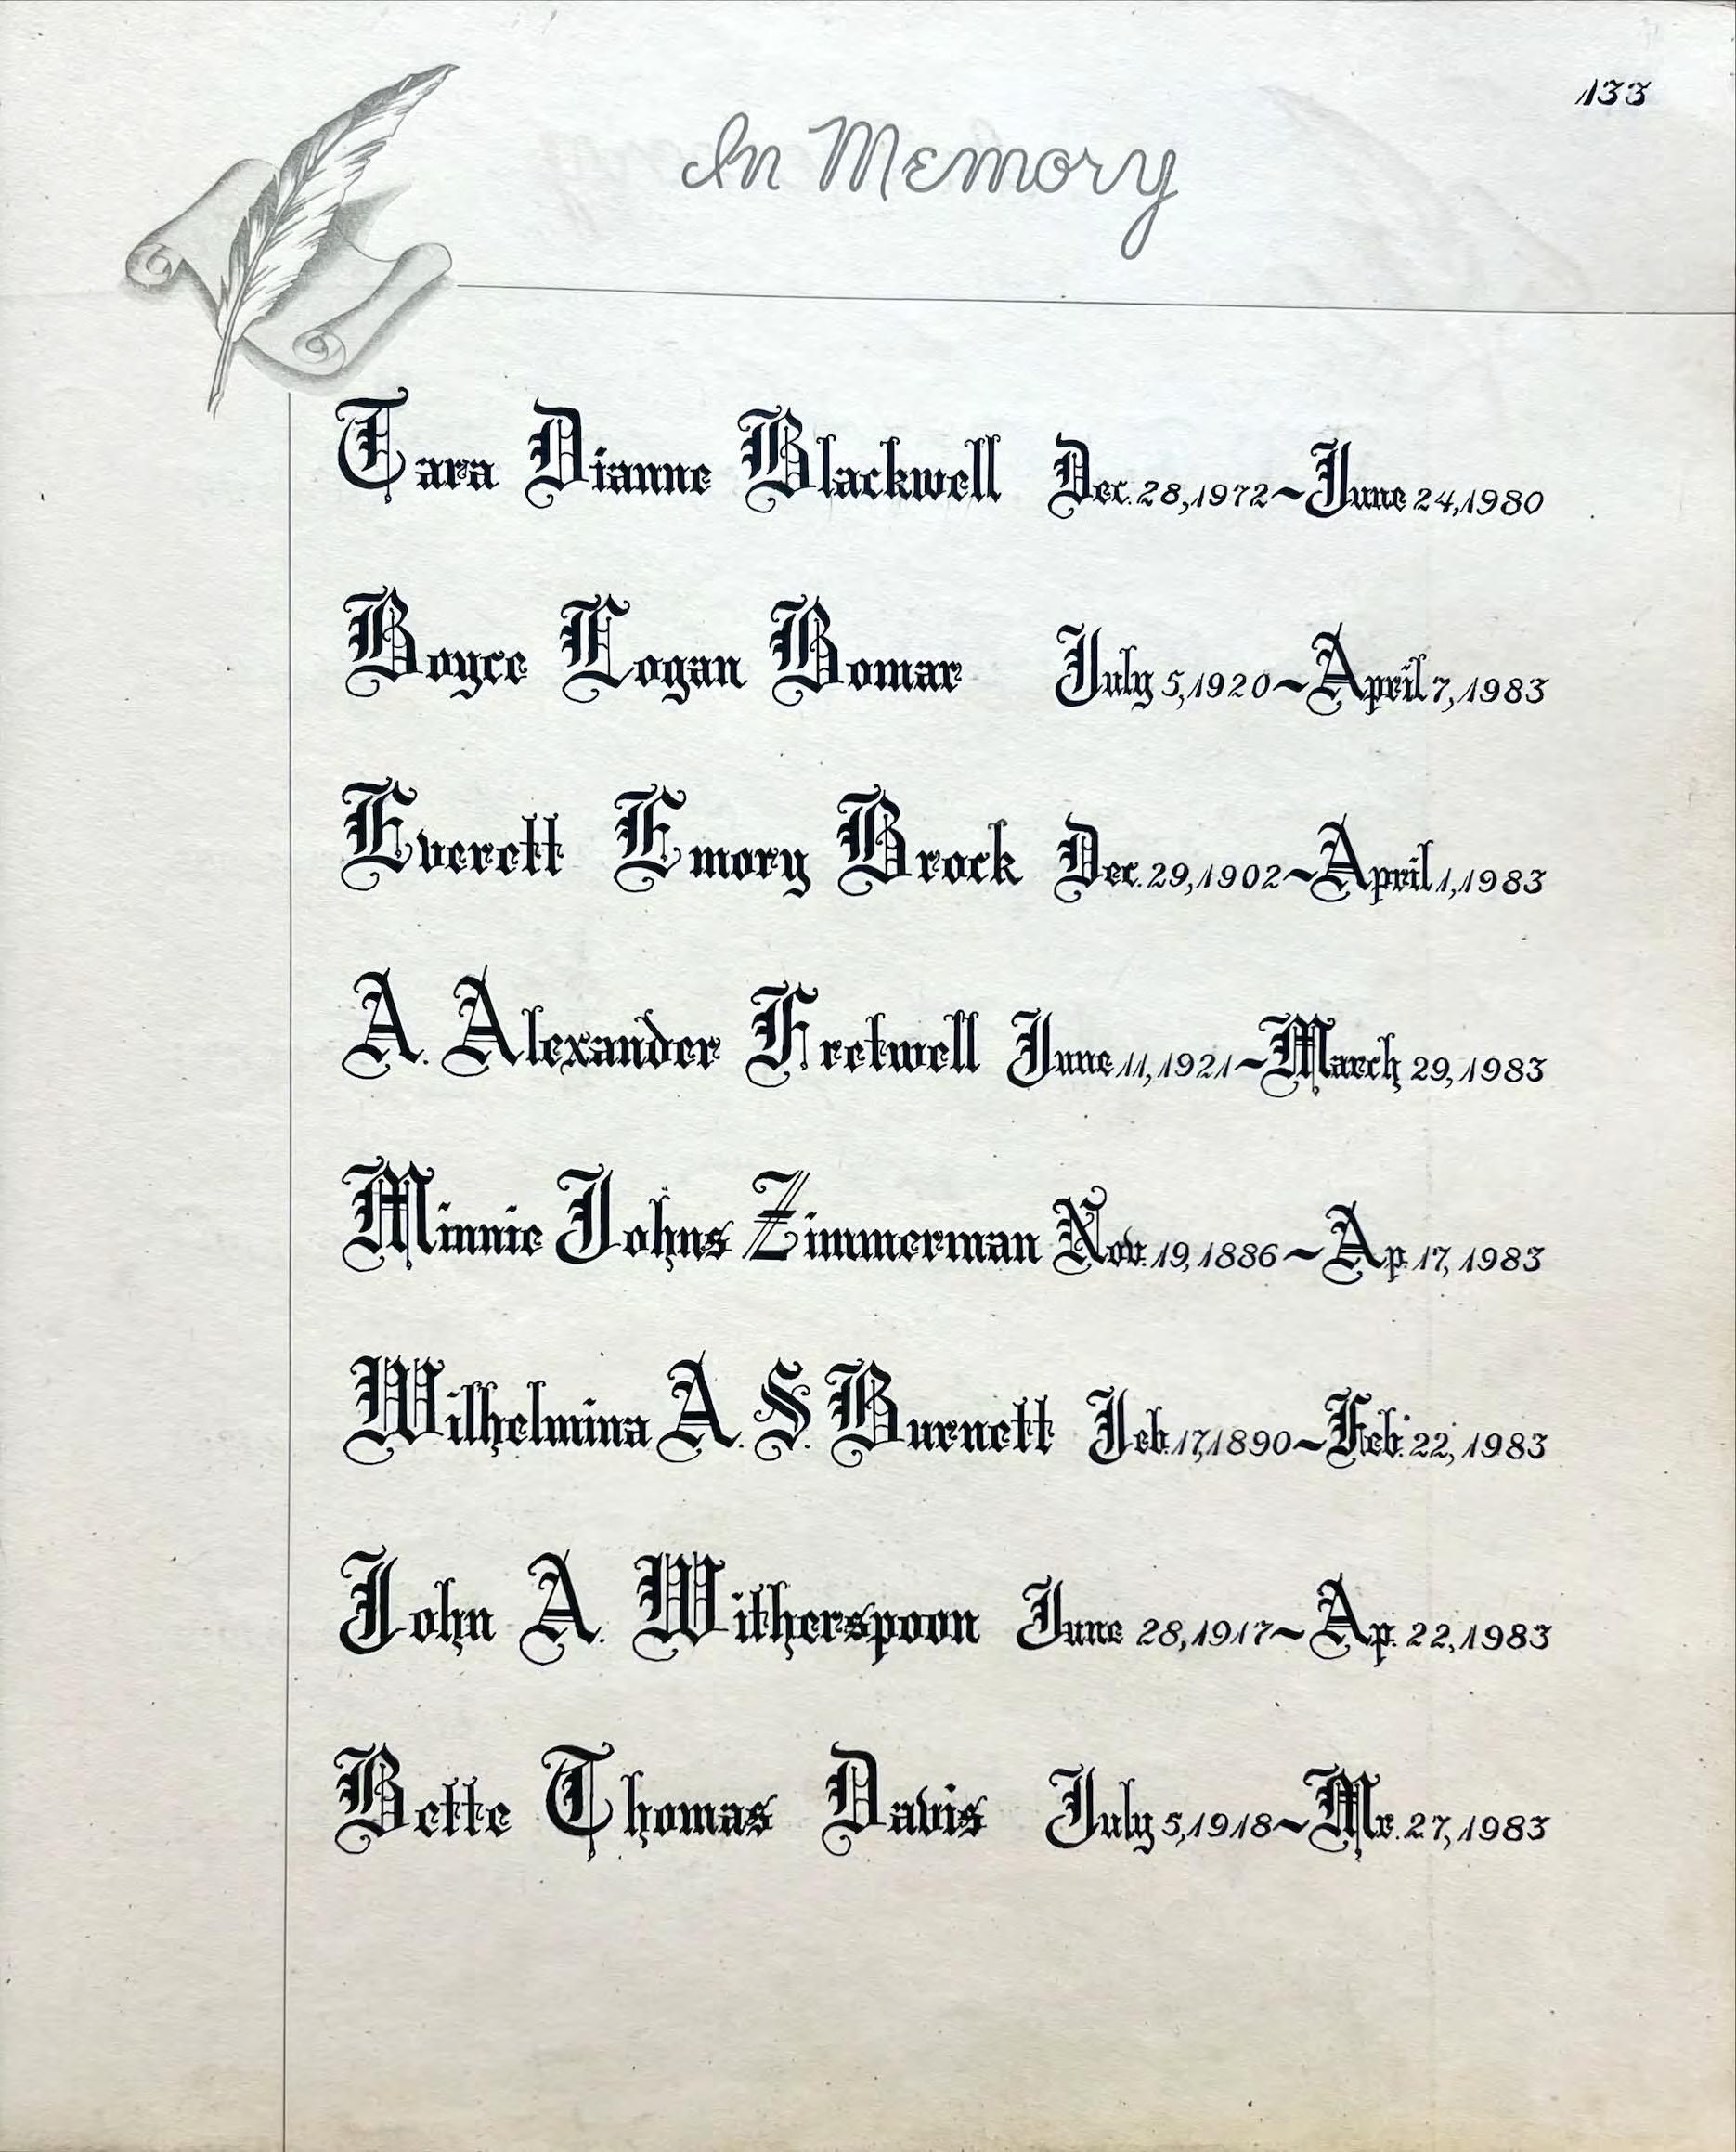 133
In Memory
Tara Dianne Blackwell Dec. 28, 1972~June 24, 1980
Boyce Logan Bomar July 5, 1920~April 7, 1983
Everett Emory Brock Dec. 29, 1902~April 1, 1983
A. Alexander Fretwell June 11, 1921~March 29, 1983
Minnie Johns Zimmerman Nov. 19, 1886~Ap. 17, 1983
Wilhelmina A. S. Burnett Jeb. 17, 1890~Feb. 22, 1983
John A. Witherspoon June 28, 1917~Ap. 22, 1983
Bette Thomas Davis July 5, 1918~Mr. 27, 1983